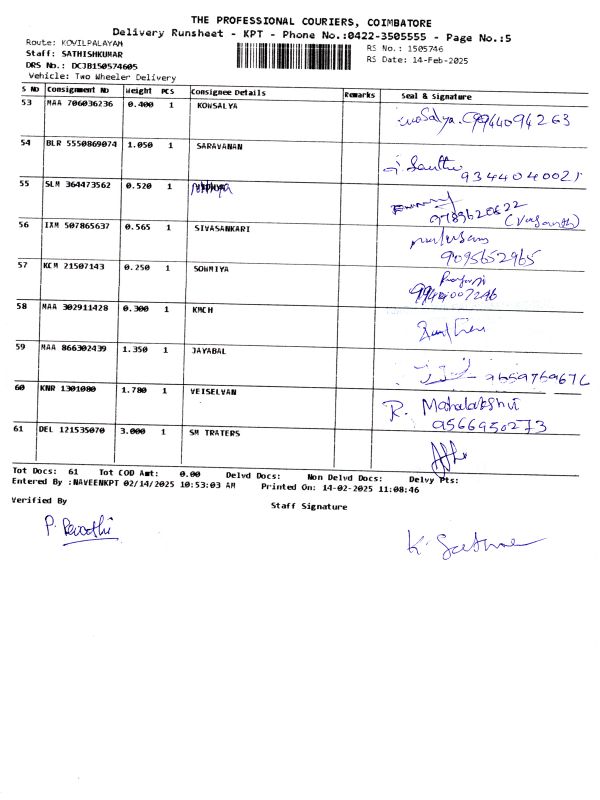 THE PROFESSIONAL COURIERS, COIMBATORE
Delivery Runsheet - KPT - Phone No.:0422-3505555 - Page No.:5
Route: KOVILPALAYAM
RS No.: 1505746
Staff: SATHISHKUMAR
RS Date: 14-Feb-2025
DRS No.: DCJB150574605
Vehicle: Two Wheeler Delivery
S No Consignment No Weight PCS Consignee Details Remarks Seal & Signature
53 MAA 706036236 0.400 1 KOWSALYA
54 BLR 5550869074 1.050 1 SARAVANAN
9344040021
55 SLM 364473562 0.520 1
9789620622
56 IXM 507865637 0.565 1 SIVASANKARI
9095652965
57 KCM 21507143 0.250 1 SOWMIYA
58 MAA 302911428 0.300 1 KMCH
59 MAA 866302439 1.350 1 JAYABAL
60 KNR 1301080 1.780 1 VEISELVAN R. Mahalakshmi
9566950273
61 DEL 121535070 3.000 1 SM TRATERS
Tot Docs: 61 Tot COD Amt: 0.00 Delvd Docs: Non Delvd Docs: Delvy Pts:
Entered By :NAVEENKPT 02/14/2025 10:53:03 AM Printed On: 14-02-2025 11:08:46
Verified By
Staff Signature
P. Revathi